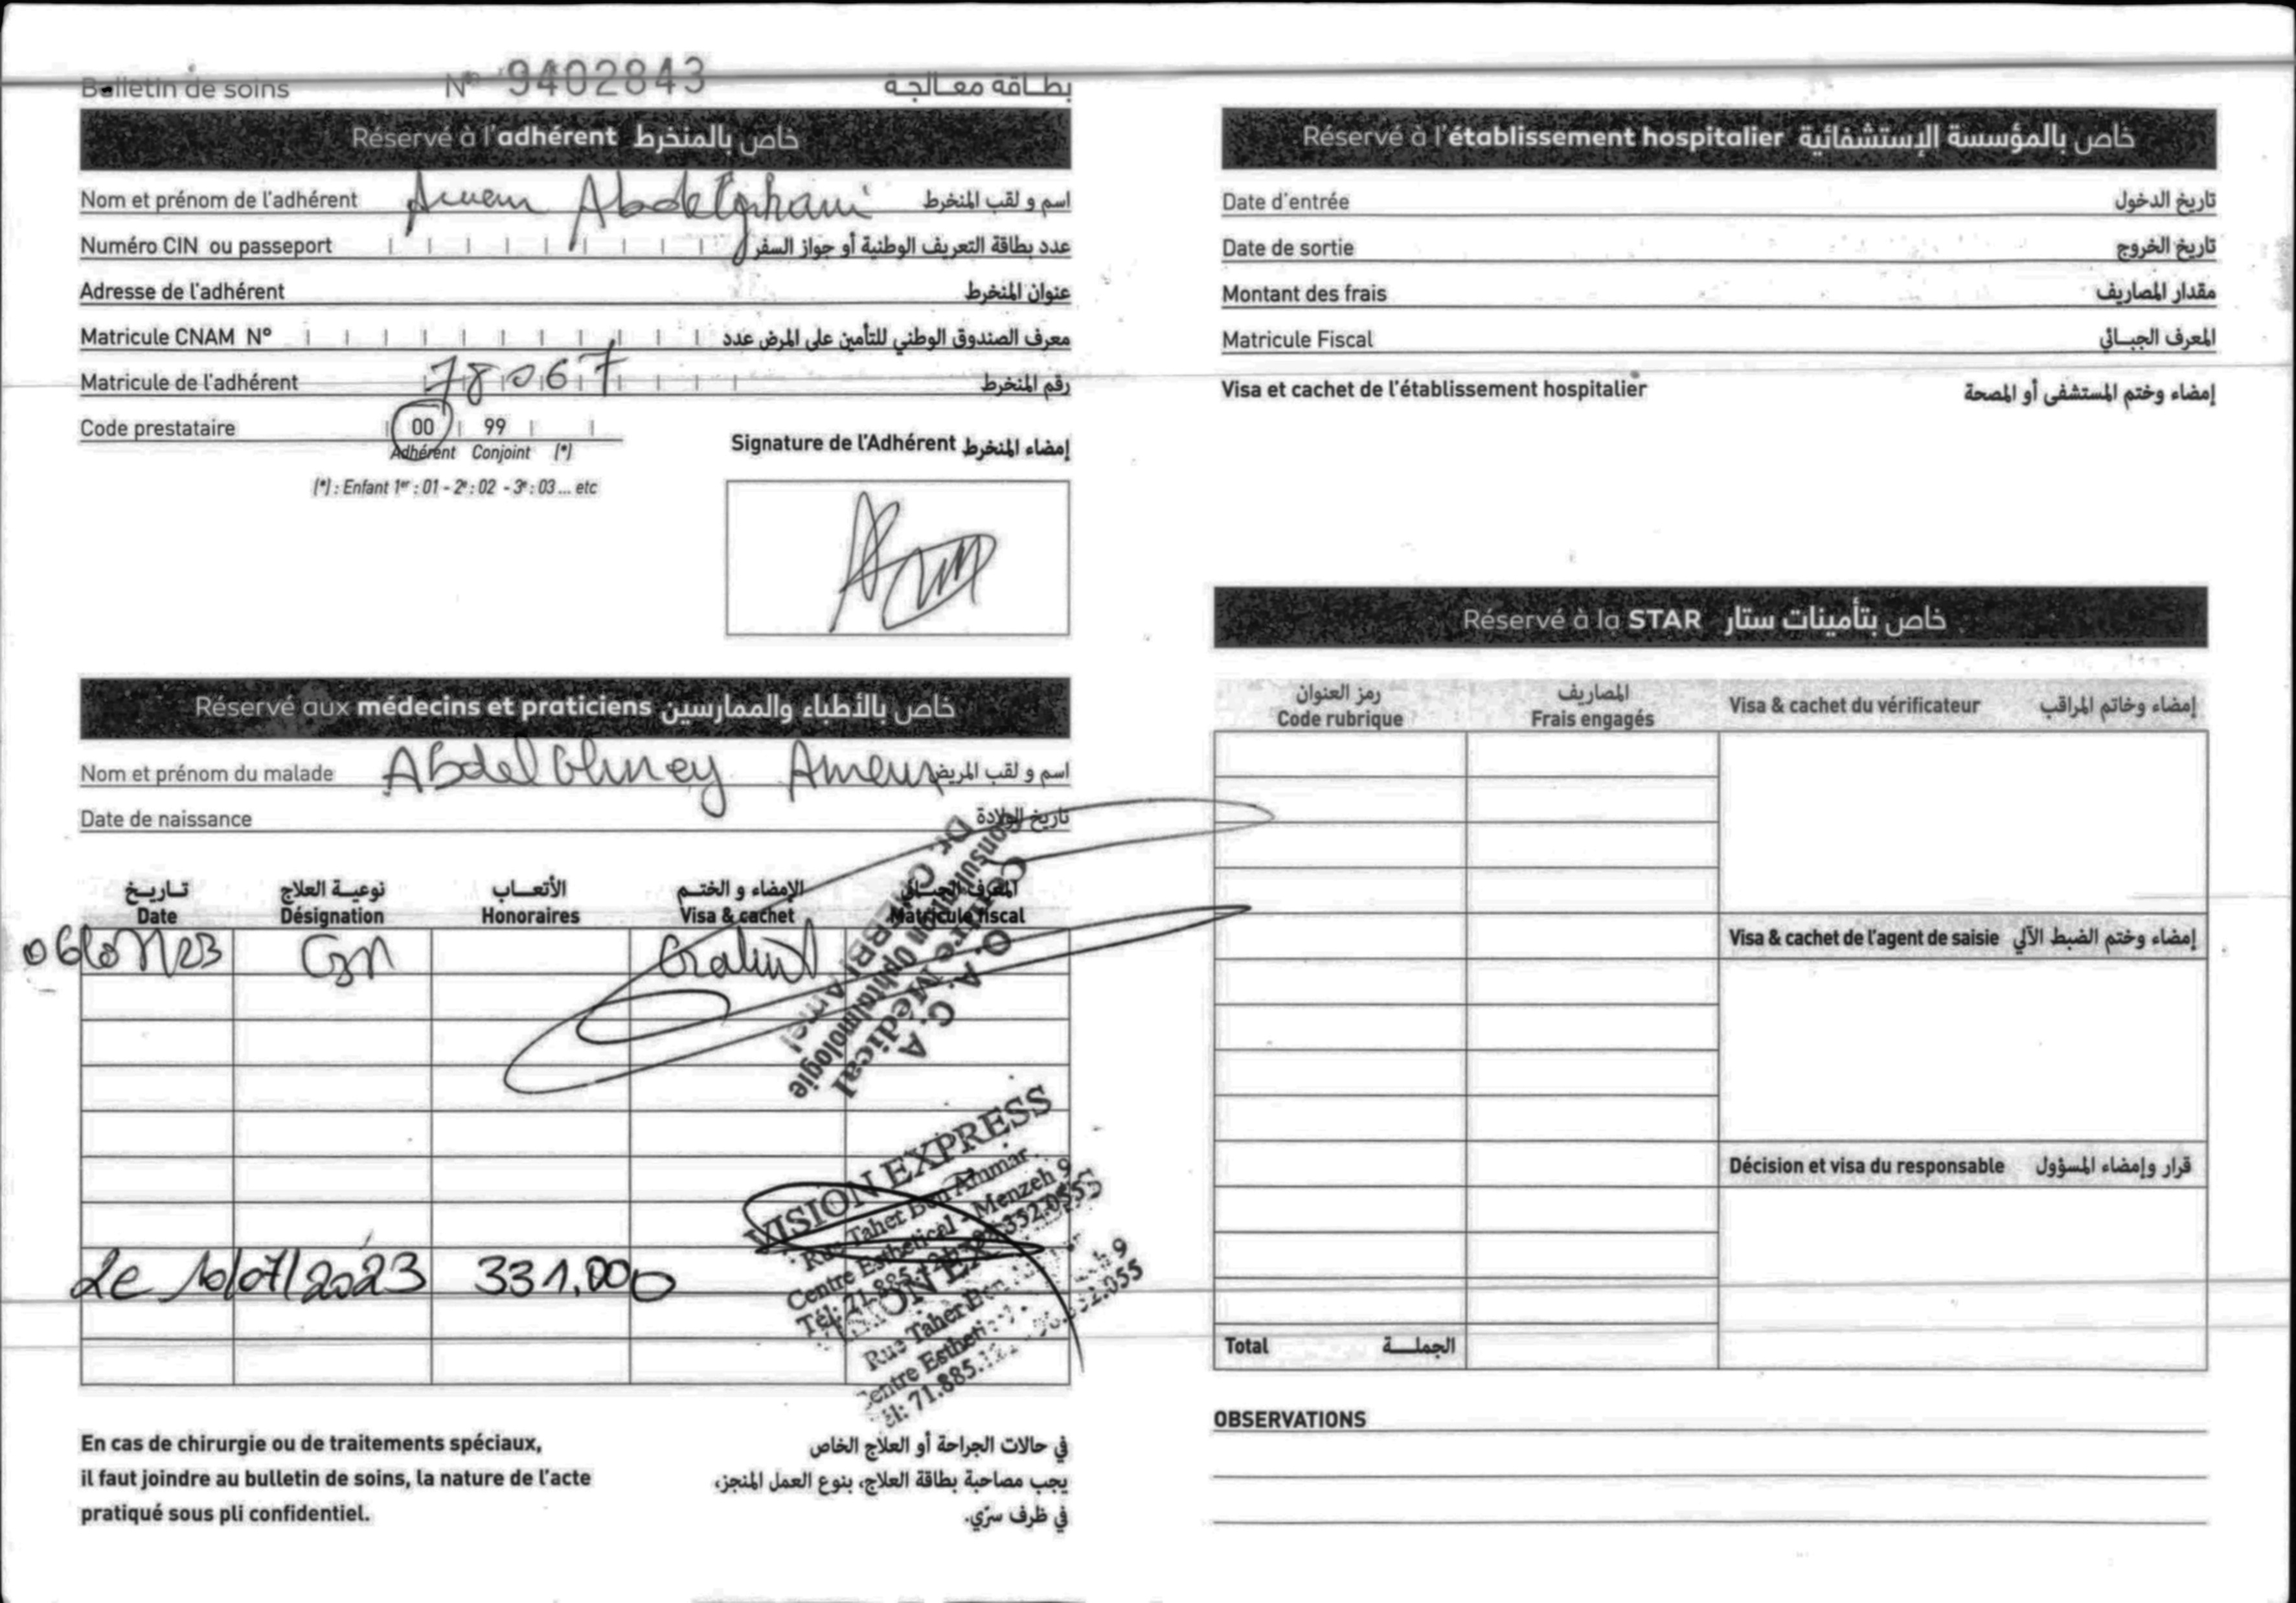 Bulletin de soins N° 9402843 بطاقة معالجة
Réservé à l'adhérent خاص بالمنخرط
Nom et prénom de l'adhérent Ameur Abdelghani اسم و لقب المنخرط
Numéro CIN ou passeport عدد بطاقة التعريف الوطنية أو جواز السفر
Adresse de l'adhérent عنوان المنخرط
Matricule CNAM N° معرف الصندوق الوطني للتأمين على المرض عدد
Matricule de l'adhérent 78067 رقم المنخرط
Code prestataire 00 99
Adhérent Conjoint (*)
(*) : Enfant 1er : 01 - 2e : 02 - 3e : 03 ... etc
Signature de l'Adhérent إمضاء المنخرط
Réservé aux médecins et praticiens خاص بالأطباء والممارسين
Nom et prénom du malade Abdel Ghney Ameur اسم و لقب المريض
Date de naissance تاريخ الولادة
تـاريـخ نوعيـة العلاج الأتعـاب الإمضاء و الختـم المعرف الجبـائي
Date Désignation Honoraires Visa & cachet Matricule fiscal
06/07/23 Gratuit
Dr. CHEBBI Amel
Consultation Ophtalmologie
Centre Médical
O. A. C. A
Le 10/07/2023 331,000
VISION EXPRESS
Rue Taher Ben Ammar
Centre Esthetical - Menzeh 9
Rue Taher Ben
Centre Estheti
Tél: 71.885.12
En cas de chirurgie ou de traitements spéciaux,
il faut joindre au bulletin de soins, la nature de l'acte
pratiqué sous pli confidentiel.
في حالات الجراحة أو العلاج الخاص
يجب مصاحبة بطاقة العلاج، بنوع العمل المنجز،
في ظرف سرّي.
Réservé à l'établissement hospitalier خاص بالمؤسسة الإستشفائية
Date d'entrée تاريخ الدخول
Date de sortie تاريخ الخروج
Montant des frais مقدار المصاريف
Matricule Fiscal المعرف الجبـائي
Visa et cachet de l'établissement hospitalier إمضاء وختم المستشفى أو المصحة
Réservé à la STAR خاص بتأمينات ستار
رمز العنوان المصاريف
Code rubrique Frais engagés Visa & cachet du vérificateur إمضاء وخاتم المراقب
Visa & cachet de l'agent de saisie إمضاء وختم الضبط الآلي
Décision et visa du responsable قرار وإمضاء المسؤول
Total الجملـــة
OBSERVATIONS